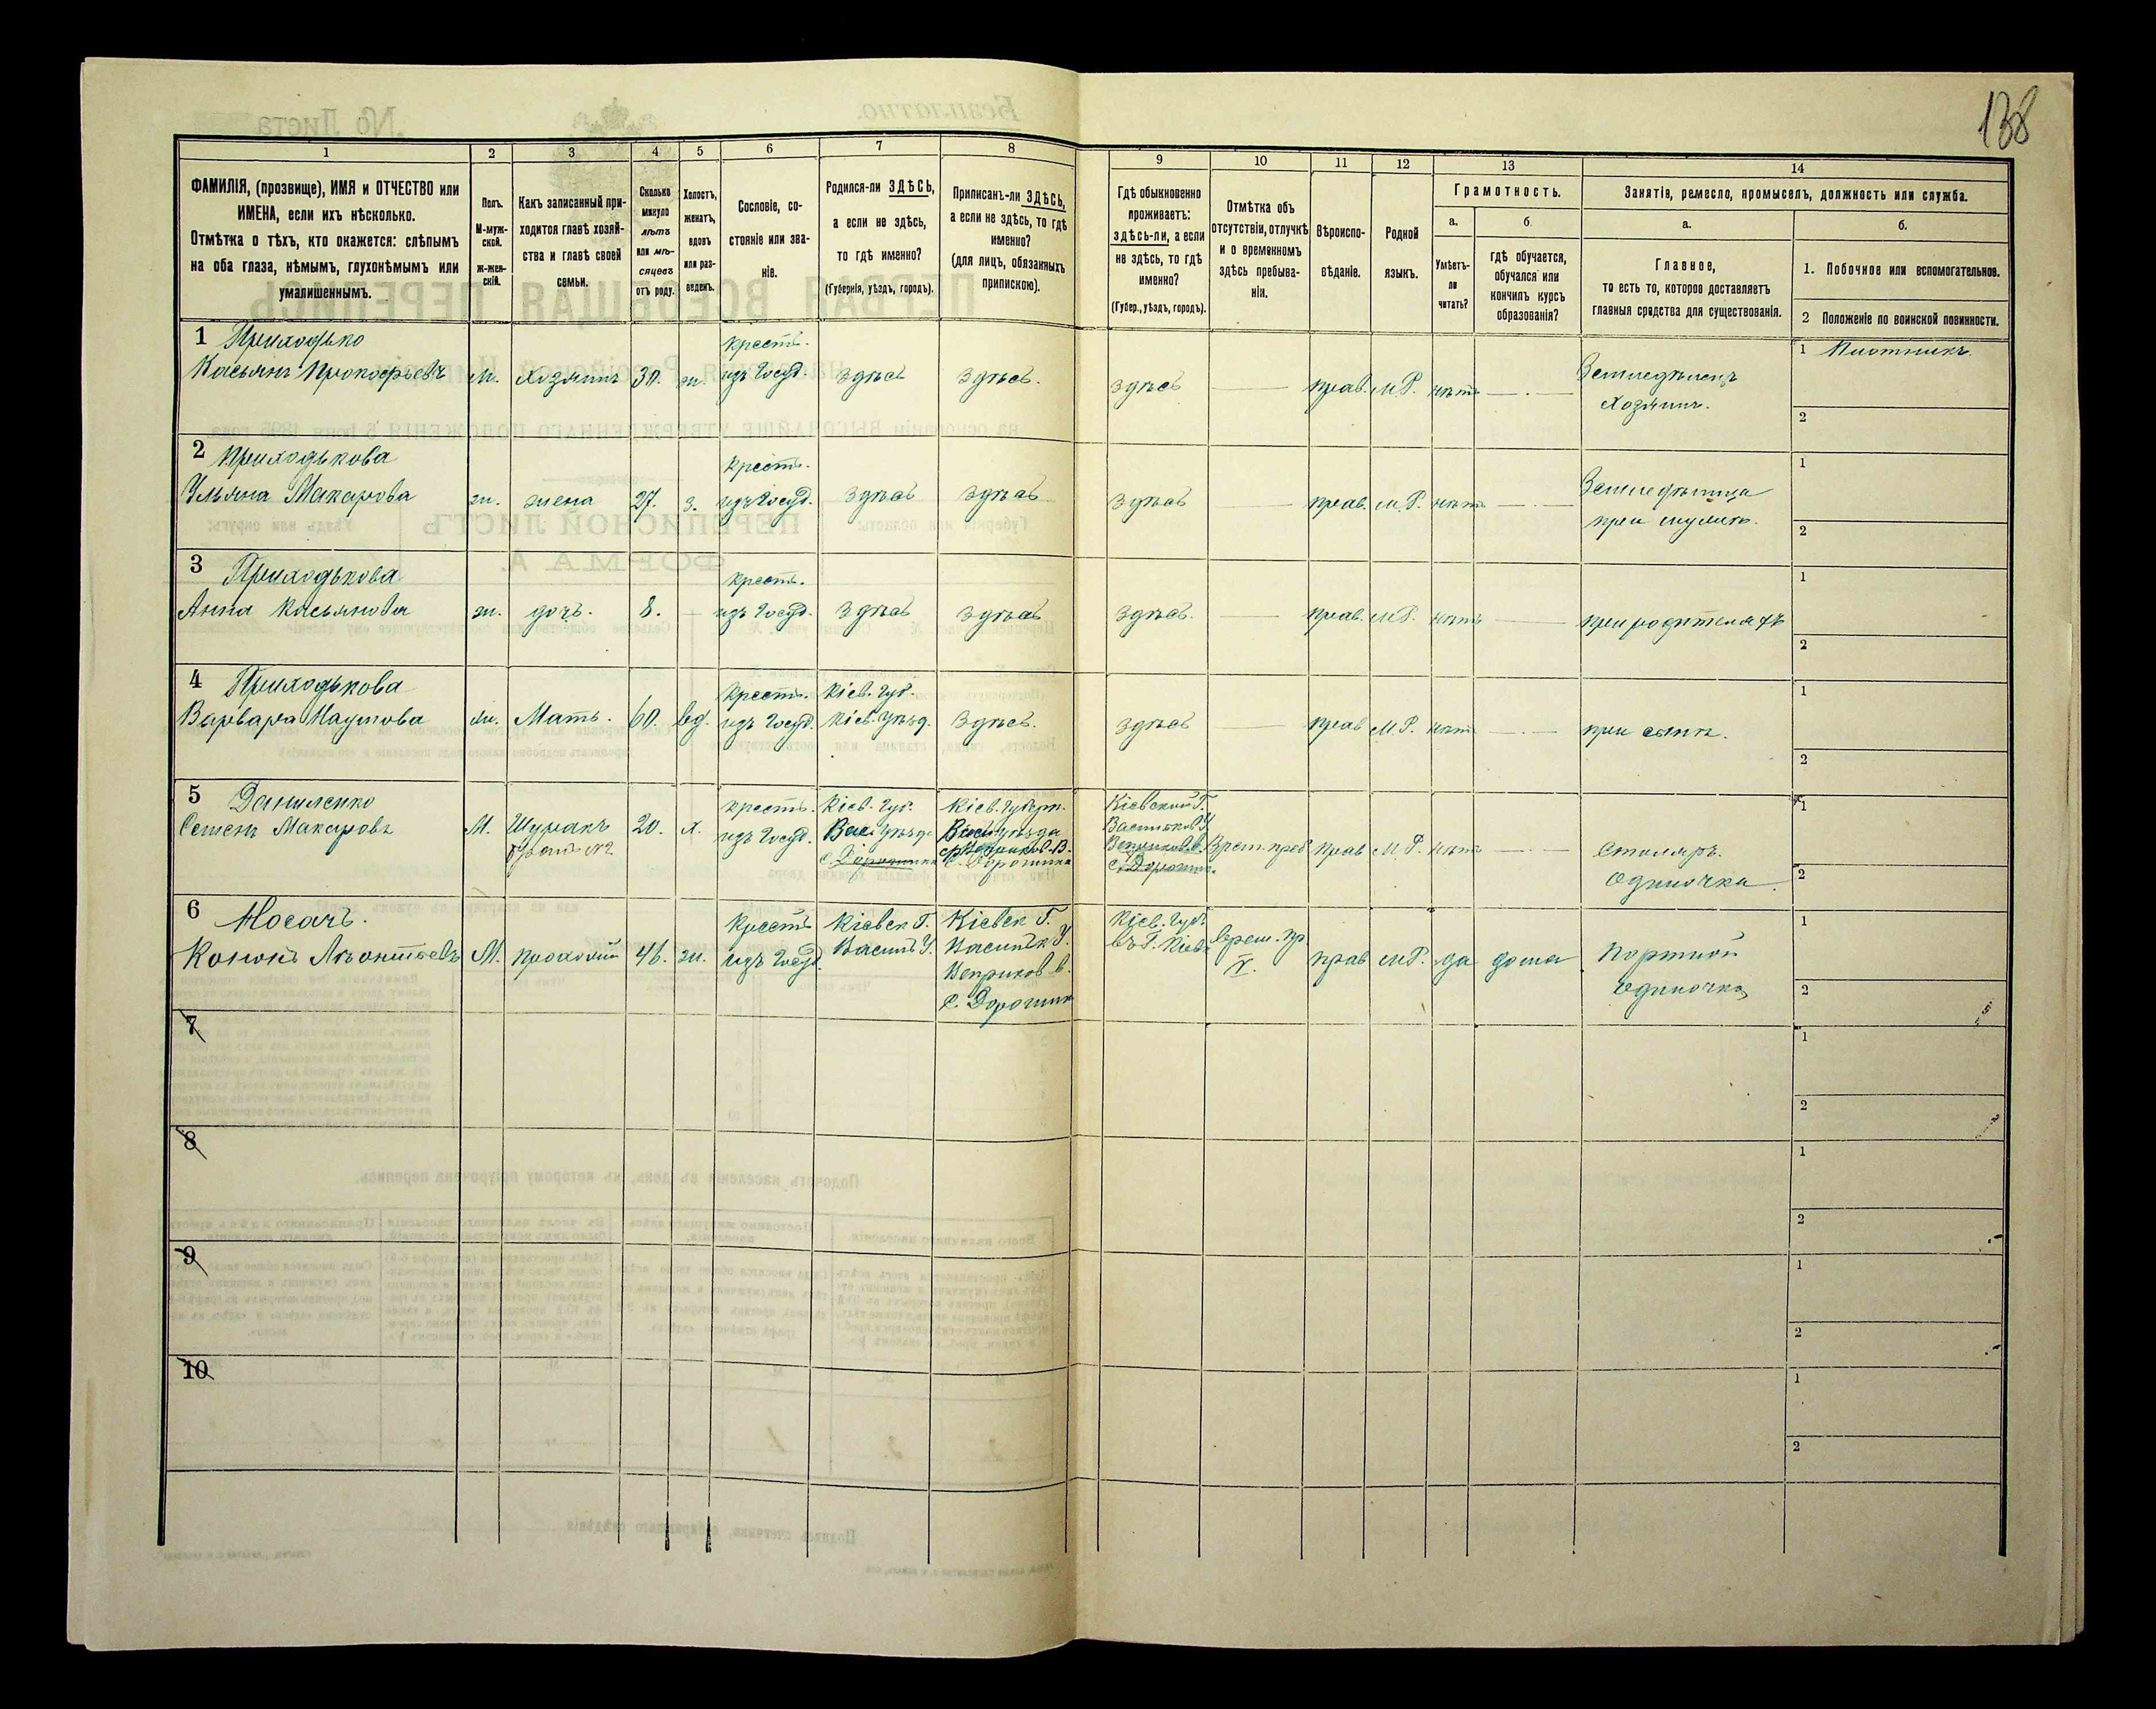 138
1
2
3
4
5
6
7
8
9
10
11
12
13
14
ФАМИЛІЯ, (прозвище), ИМЯ и ОТЧЕСТВО или
ИМЕНА, если ихъ нѣсколько.
Отмѣтка о тѣхъ, кто окажется: слѣпымъ
на оба глаза, нѣмымъ, глухонѣмымъ или
умалишеннымъ.
Полъ.
М-муж-
ской.
Ж-жен-
скій.
Какъ записанный при-
ходится главѣ хозяй-
ства и главѣ своей
семьи.
Сколько
минуло
лѣтъ
или мѣ-
сяцевъ
отъ роду.
Холостъ,
женатъ,
вдовъ
или раз-
веденъ.
Сословіе, со-
стояніе или зва-
ніе.
Родился-ли ЗДѢСЬ,
а если не здѣсь,
то гдѣ именно?
(Губернія, уѣздъ, городъ).
Приписанъ-ли ЗДѢСЬ,
а если не здѣсь, то гдѣ
именно?
(для лицъ, обязанныхъ
припискою).
Гдѣ обыкновенно
проживаетъ:
здѣсь-ли, а если
не здѣсь, то гдѣ
именно?
(Губер., уѣздъ, городъ).
Отмѣтка объ
отсутствіи, отлучкѣ
и о временномъ
здѣсь пребыва-
ніи.
Вѣроиспо-
вѣданіе.
Родной
языкъ.
Грамотность.
а.
Умѣетъ-
ли
читать?
б.
гдѣ обучается,
обучался или
кончилъ курсъ
образованія?
Занятія, ремесло, промыселъ, должность или служба.
а.
Главное,
то есть то, которое доставляетъ
главныя средства для существованія.
б.
1. Побочное или вспомогательное.
2 Положеніе по воинской повинности.
1 Приходько
Касьянъ Прокофьевъ
м.
хозяинъ
30.
ж.
крест.
изъ Госуд.
здѣсь
здѣсь.
здѣсь
прав.
М.Р.
нѣтъ
Земледѣлецъ
хозяинъ.
1 Плотникъ.
2
2 Приходькова
Ульяна Макарова
ж.
жена
27.
з.
крест.
изъ Госуд.
здѣсь
здѣсь
здѣсь
прав.
М.Р.
нѣтъ
Земледѣлица
при мужѣ.
1
2
3 Приходькова
Анна Касьянова
ж.
дочь.
8.
крест.
изъ Госуд.
здѣсь
здѣсь
здѣсь.
прав.
М.Р.
нѣтъ
при родителяхъ
1
2
4 Приходькова
Варвара Наумова
ж.
Мать.
60.
вд.
крест.
изъ Госуд.
Кіев. Губ.
Кіев. Уѣзд.
здѣсь.
здѣсь
прав
М.Р.
нѣтъ
при сынѣ.
1
2
5 Даниленко
Семенъ Макаровъ
М.
Шуринъ
20.
х.
крест.
изъ Госуд.
Кіев. Губ.
Вас. Уѣзд.
Кіев. Губерн.
Вас. уѣзда
с. Дорогинка
Кіевской Г.
Васильков. У
Врем. преб
прав
М.Р.
нѣтъ
Столяръ.
Одиночка.
1
2
6 Мосачъ.
Кононъ Леонтіевъ
М.
прохожій
46.
ж.
крест
изъ Госуд.
Кіевск Г.
Васильк У.
Кіевск Г.
Васильк У.
Веприков в.
с. Дорогинк
Кіев. Губ.
въ Г. Кіевѣ
врем. пр
прав
М.Р.
да
дома
Портной
Одиночка
1
2
7
1
2
8
1
2
9
1
2
10
1
2